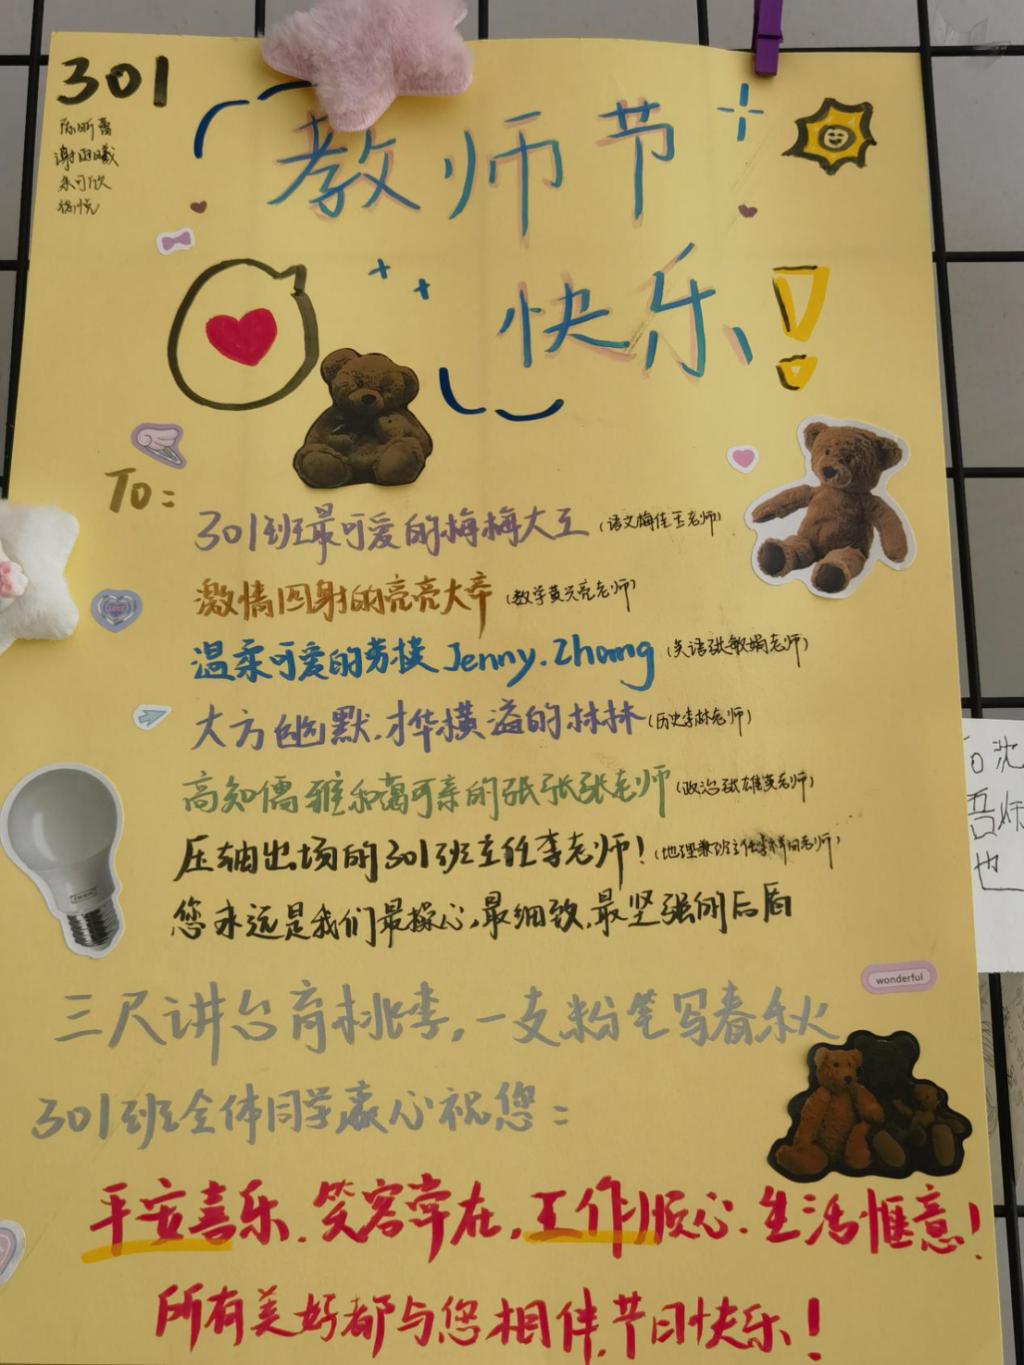 301
教师节
快乐!
To:
301班最可爱的梅梅大王(语文梅佳玉老师)
激情四射的亮亮大帝(数学黄兴亮老师)
温柔可爱的劳模Jenny.Zhang(英语张敏娟老师)
大方幽默.才华横溢的林林(历史李林老师)
高知儒雅和蔼可亲的张张张老师(政治张雄英老师)
压轴出场的301班主任李老师!(地理兼班主任李老师)
您永远是我们最操心,最细致.最坚强的后盾
wonderful
三尺讲台育桃李,一支粉笔写春秋
301班全体同学衷心祝您:
平安喜乐.笑容常在,工作顺心.生活惬意!
所有美好都与您相伴.节日快乐!